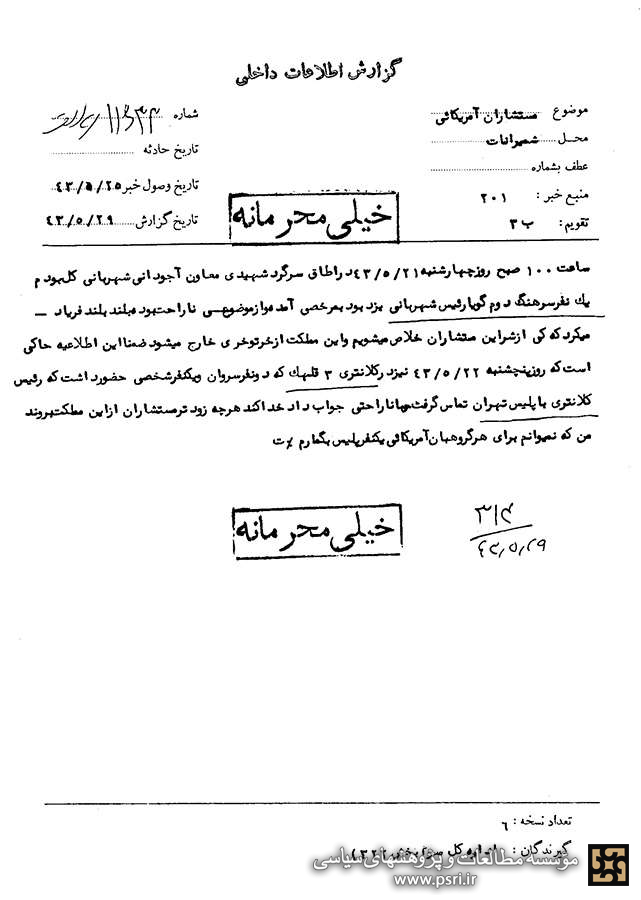 گزارش اطلاعات داخلی
موضوع مستشاران آمریکائی
محل شمیرانات
عطف بشماره
منبع خبر : ۲۰۱
تقویم : ب ۳
شماره ۱۱۶۳۴
تاریخ حادثه
تاریخ وصول خبر ۴۳/۵/۲۵
تاریخ گزارش ۴۳/۵/۲۹
خیلی محرمانه
ساعت ۱۰۰ صبح روز چهارشنبه ۴۳/۵/۲۱ در اطاق سرگرد شهیدی معاون آجودانی شهربانی کل بودم
یک نفر سرهنگ دوم گویا رئیس شهربانی یزد بود بمرخصی آمده و از موضوعی ناراحت بود و بلند بلند فریاد –
میکرد که کی از شر این مستشاران خلاص میشویم و این مملکت از خر توخری خارج میشود ضمنا این اطلاعیه حاکی
است که روز پنجشنبه ۴۳/۵/۲۲ نیز در کلانتری ۳ قلهک که دو نفر سروان و یکنفر شخصی حضور داشت که رئیس
کلانتری با پلیس تهران تماس گرفت و با ناراحتی جواب داد خدا کند هر چه زودتر مستشاران از این مملکت بروند
من که نمیتوانم برای هر گروهبان آمریکائی یکنفر پلیس بگمارم
خیلی محرمانه
۴۳/۵/۲۹
تعداد نسخه : ۶
گیرندگان : اداره کل سوم بخش ۳۲۲
موسسه مطالعات و پژوهشهای سیاسی
www.psri.ir